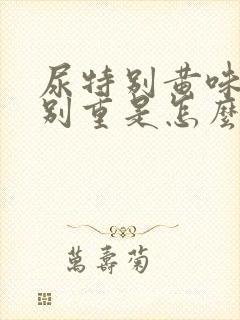 尿特别黄味
别重是怎麼
萬壽菊